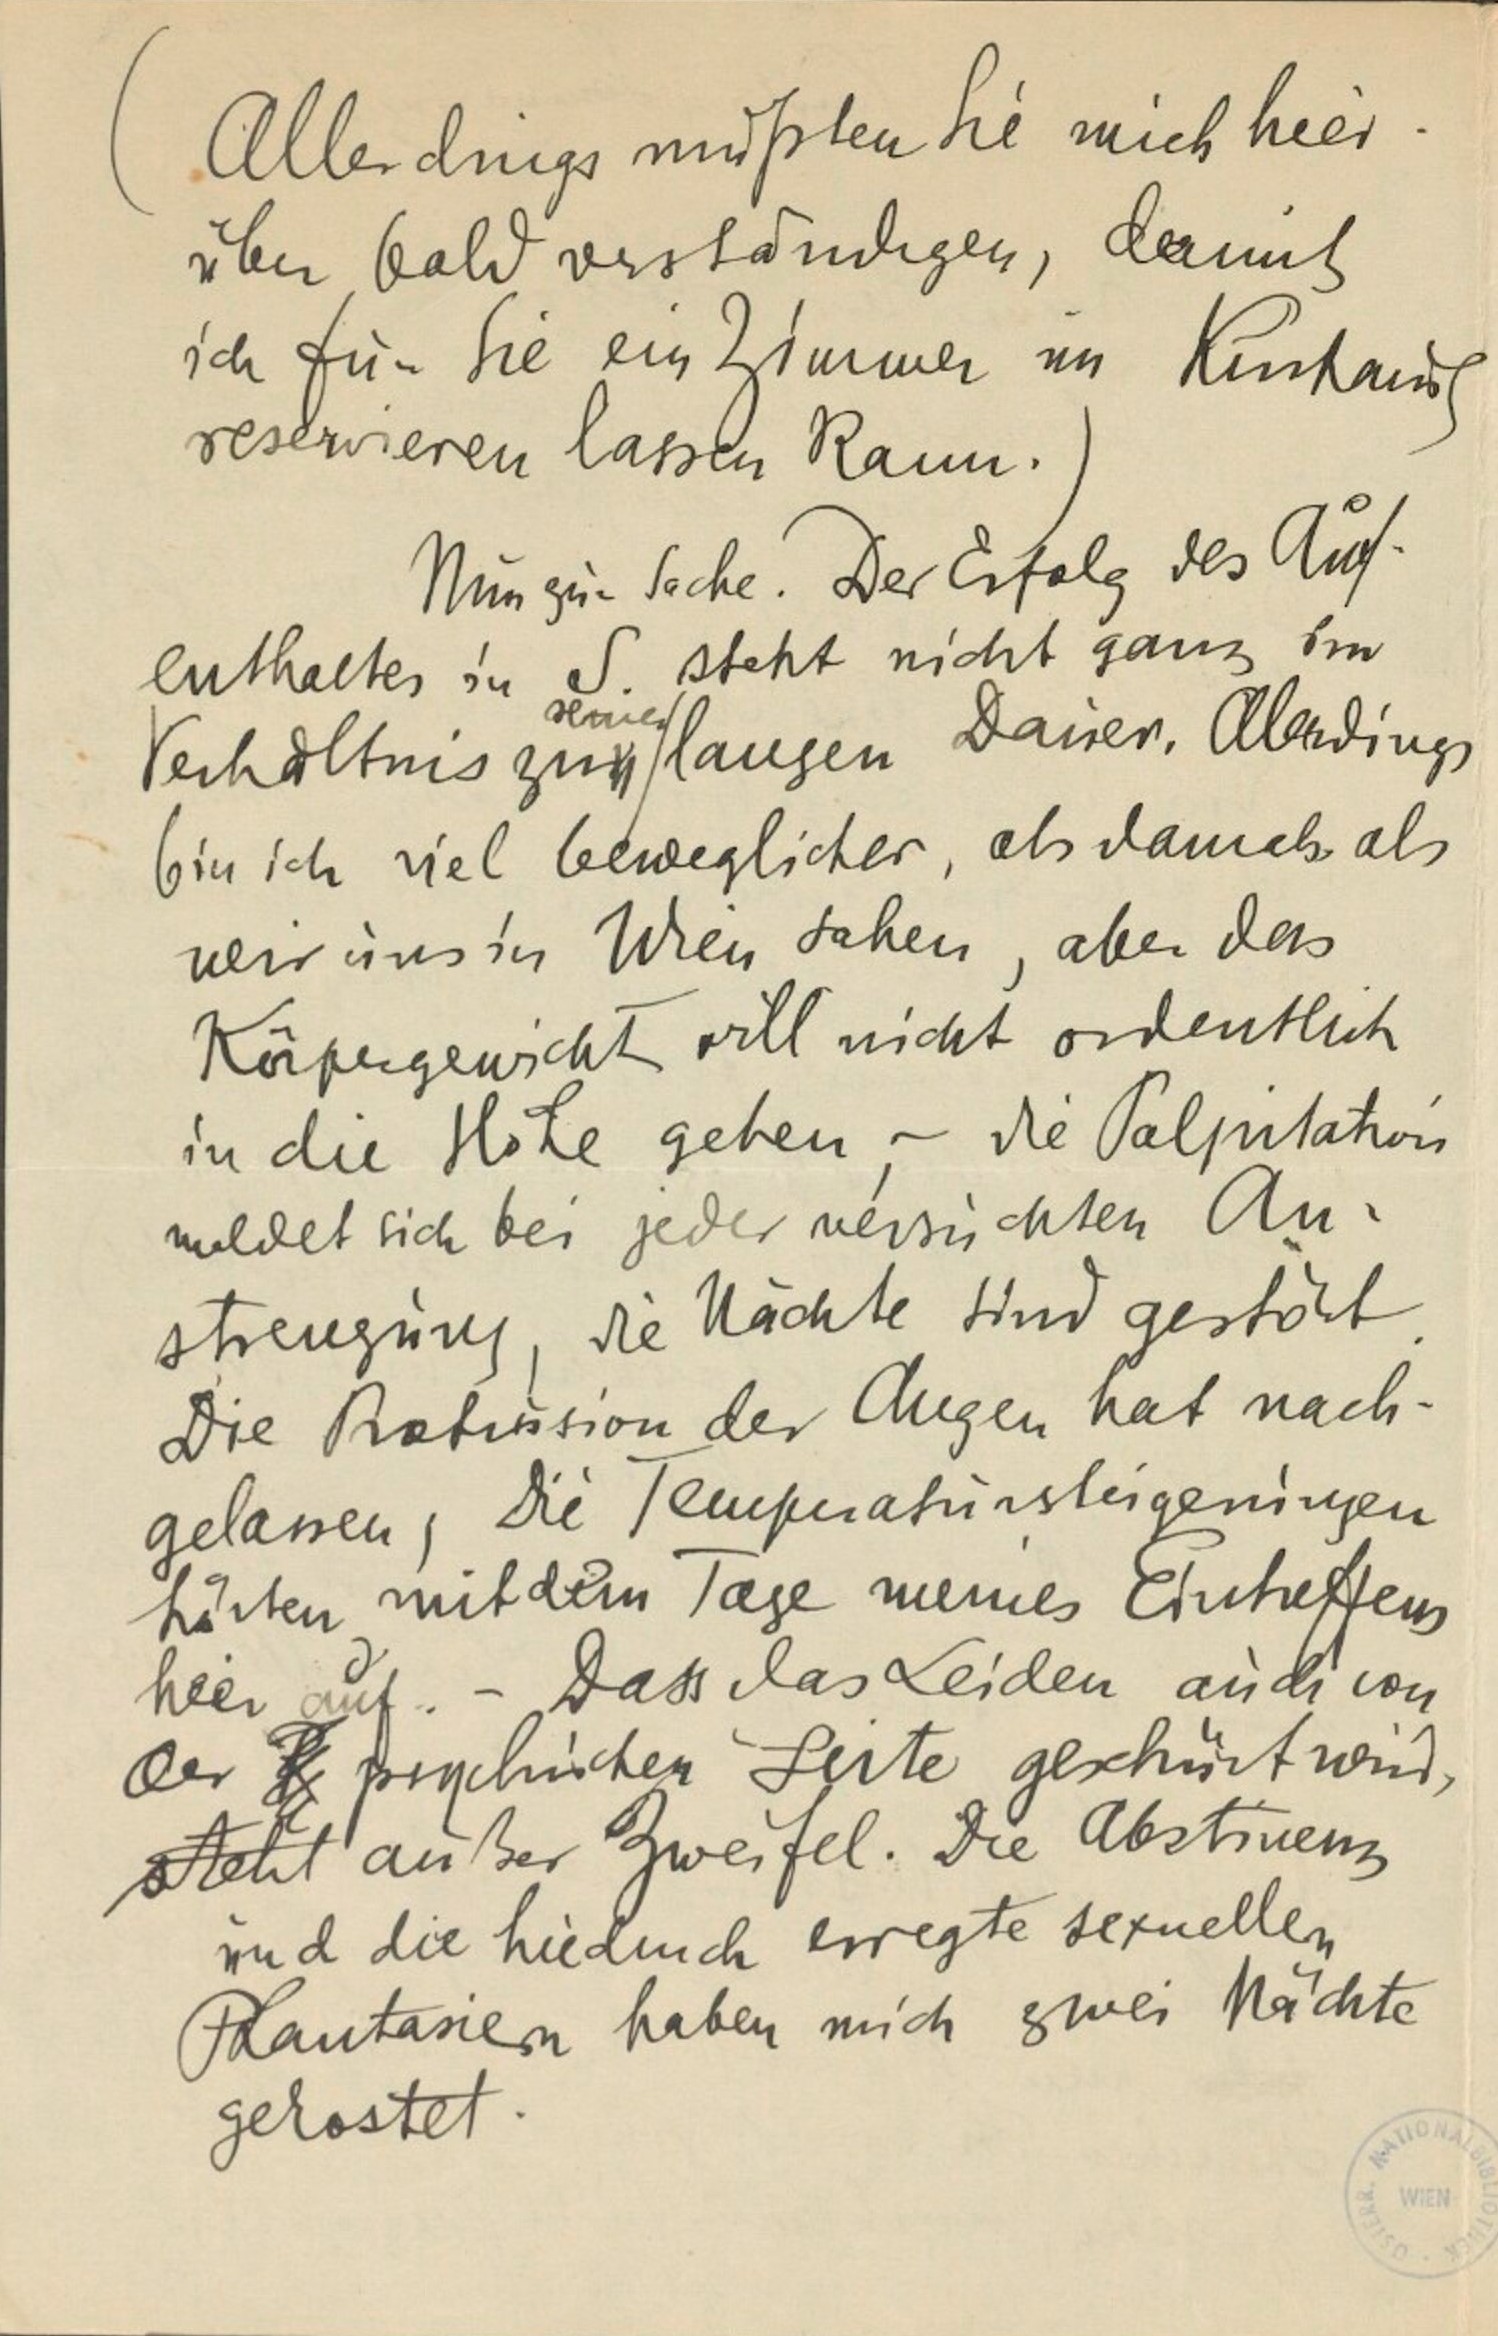 (Allerdings müßten Sie mich hier-
über bald verständigen, damit
ich für Sie ein Zimmer im Kurhaus
reservieren lassen kann.)
Nun zur Sache. Der Erfolg des Auf-
enthaltes in S. steht nicht ganz im
seiner
Verhältnis zu langen Dauer. Allerdings
bin ich viel beweglicher, als damals als
wir uns in Wien sahen, aber das
Körpergewicht will nicht ordentlich
in die Höhe gehen, – die Palpitation
meldet sich bei jeder versuchten An-
strengung, die Nächte sind gestört.
Die Protrusion der Augen hat nach-
gelassen, die Temperatursteigerungen
hörten mit dem Tage meines Eintreffens
hier auf. – Dass das Leiden auch von
der psychischen Seite geschürt wird,
steht außer Zweifel. Die Abstinenz
und die hiedurch erregte sexuellen
Phantasien haben mich zwei Nächte
gekostet.
ÖSTERR. NATIONALBIBLIOTHEK
WIEN